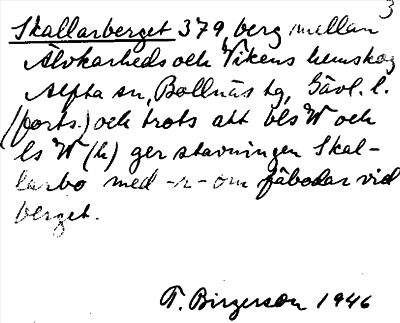 3
Skallarberget 379, berg mellan
Älvkarheds och Vikens hemskog
Alfta sn, Bollnäs tg, Gävl. l.
(forts.) och trots att bls W och
ls W (h) ger stavningen Skal-
larbo med -r- om fäbodar vid
berget.
T. Birgerson 1946